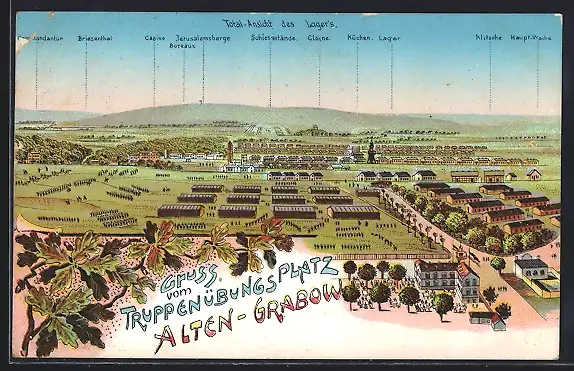 Total-Ansicht des Lager's.
Commandantur Briesenthal Casino Jerusalemsberge Schiesstände. Cloine. Küchen. Lager Klitsche Haupt-Wache
Bureaux
Gruss
vom
Truppenübungsplatz
Alten-Grabow